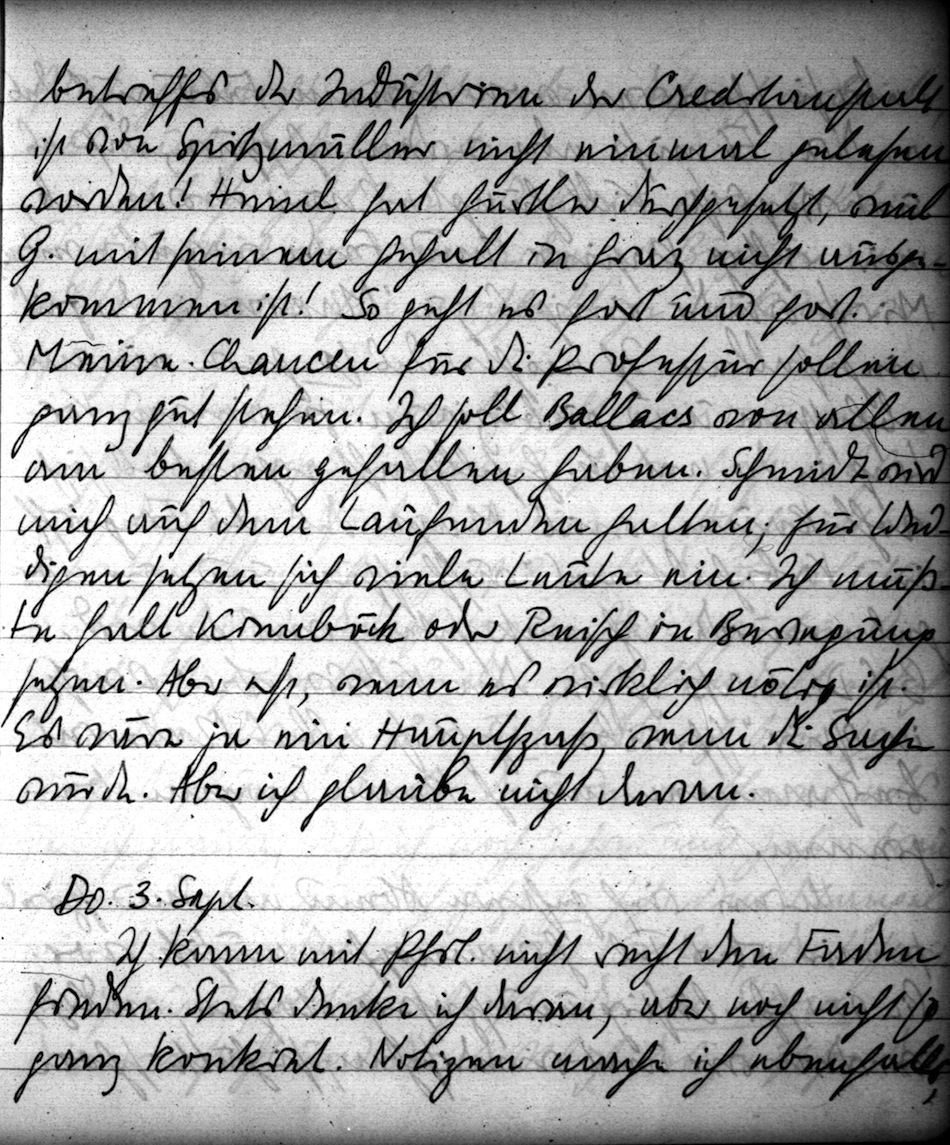 betreffs der Industrieen der Creditanstalt
ist von Spitzmüller nicht einmal gelesen
worden! Heinl hat Gürtler durchgesetzt, weil
G. mit seinem Gehalt in Graz nicht ausge-
kommen ist! So geht es fort und fort.
Meine Chancen für die Professur sollen
ganz gut stehen. Ich soll Ballacs von allen
am besten gefallen haben. Schmidt wird
mich auf dem Laufenden halten; für Wed-
digen setzen sich viele Leute ein. Ich müß-
te halt Kienböck oder Reisch in Bewegung
setzen. Aber erst, wenn es wirklich nötig ist.
Es wäre ja ein Hauptspaß, wenn die Sache
würde. Aber ich glaube nicht daran.
Do. 3. Sept.
Ich kann mit nicht recht den Faden
finden. Stets denke ich daran, aber noch nicht so
ganz konkret. Notizen mache ich ebenfalls,